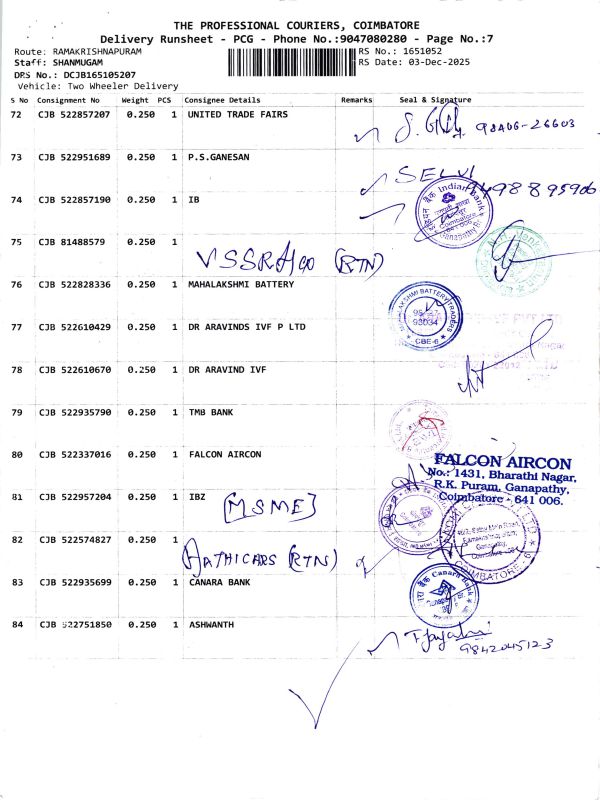 THE PROFESSIONAL COURIERS, COIMBATORE
Delivery Runsheet - PCG - Phone No.:9047080280 - Page No.:7
Route: RAMAKRISHNAPURAM RS No.: 1651052
Staff: SHANMUGAM RS Date: 03-Dec-2025
DRS No.: DCJB165105207
Vehicle: Two Wheeler Delivery
S No Consignment No Weight PCS Consignee Details Remarks Seal & Signature
72 CJB 522857207 0.250 1 UNITED TRADE FAIRS
98406-26603
73 CJB 522951689 0.250 1 P.S.GANESAN
SELVI
9498895906
74 CJB 522857190 0.250 1 IB
Indian Bank
75 CJB 81488579 0.250 1
(RTN)
76 CJB 522828336 0.250 1 MAHALAKSHMI BATTERY
MAHALAKSHMI BATTERY TRADERS
93034
CBE-6
77 CJB 522610429 0.250 1 DR ARAVINDS IVF P LTD
78 CJB 522610670 0.250 1 DR ARAVIND IVF
79 CJB 522935790 0.250 1 TMB BANK
80 CJB 522337016 0.250 1 FALCON AIRCON
FALCON AIRCON
No.: 1431, Bharathi Nagar,
R.K. Puram, Ganapathy,
Coimbatore - 641 006.
81 CJB 522957204 0.250 1 IBZ
[MSME]
82 CJB 522574827 0.250 1
(RTN)
COIMBATORE - 6
83 CJB 522935699 0.250 1 CANARA BANK
Canara Bank
84 CJB 522751850 0.250 1 ASHWANTH
9842045123